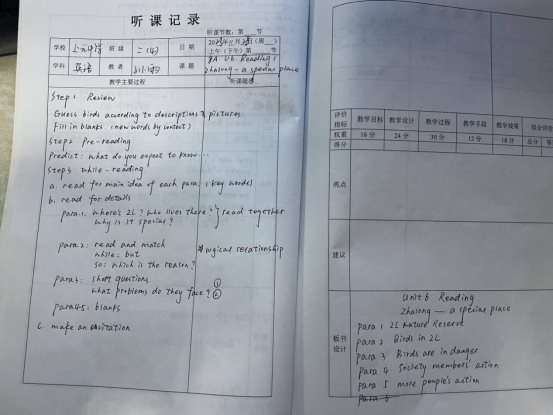 听课记录
听课节数：第 节
学校 班级 二(4) 日期 年11月 日(周 )
上午(下午)第 节
学科 英语 教者 课题 8A U6 Reading:
Zhalong - a special place
教学主要过程 听课随感
Step 1 Review
Guess birds according to descriptions & pictures.
Fill in blanks. (new words by context)
Step 2 Pre-reading
Predict: what do you expect to know ...
Step 3 while-reading
a. read for main idea of each para. (key words)
b. read for details
para.1: where's ZL? who lives there? read together
why is it special?
para 2: read and match
while; but # logical relationship
so: which is the reason?
para 3: short questions ①
what problems do they face? ②
para 4&5: blanks
c. make an invitation
评价指标 教学目标 教学设计 教学过程 教学手段 教学效果 综合评价
权重 16分 24分 30分 12分 18分 总分
得分
亮点
建议
板书设计
Unit 6 Reading
Zhalong — a special place
para 1 ZL nature Reserve
para 2 Birds in ZL
para 3 Birds are in danger
para 4 Society members' action
para 5 more people's action
para 6